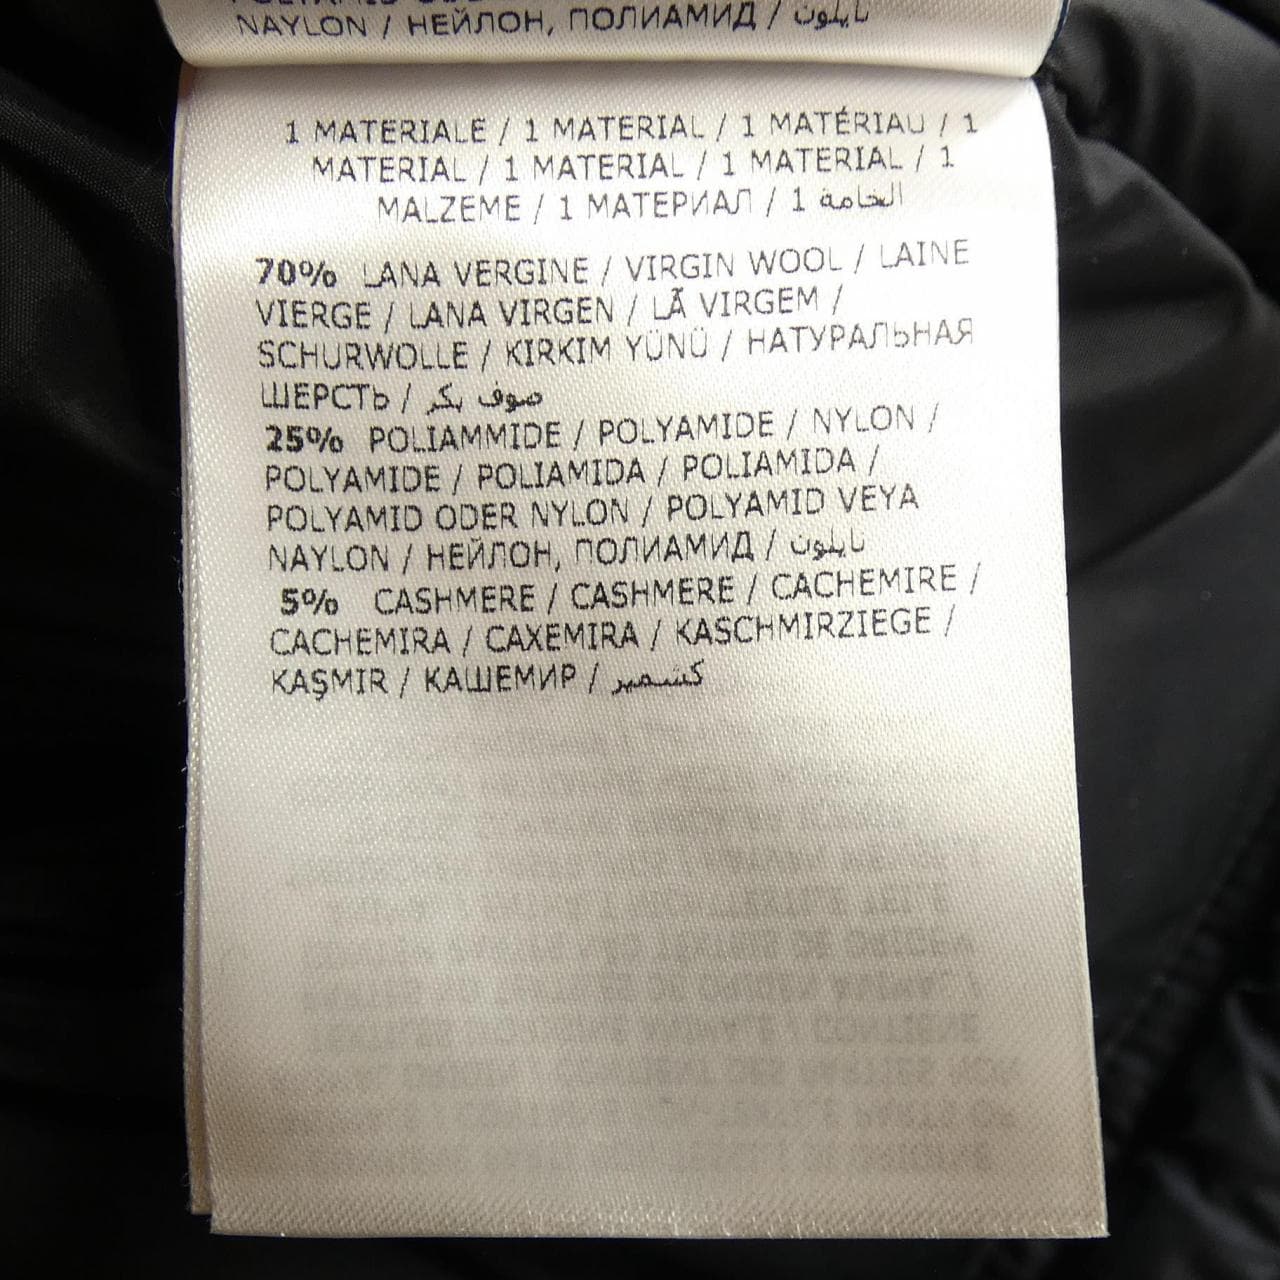 NAYLON / НЕЙЛОН, ПОЛИАМИД / نايلون
1 MATERIALE / 1 MATERIAL / 1 MATÉRIAU / 1
MATERIAL / 1 MATERIAL / 1 MATERIAL / 1
MALZEME / 1 МАТЕРИАЛ / 1 الخامة
70% LANA VERGINE / VIRGIN WOOL / LAINE
VIERGE / LANA VIRGEN / LÃ VIRGEM /
SCHURWOLLE / KIRKIM YÜNÜ / НАТУРАЛЬНАЯ
ШЕРСТЬ / صوف بكر
25% POLIAMMIDE / POLYAMIDE / NYLON /
POLYAMIDE / POLIAMIDA / POLIAMIDA /
POLYAMID ODER NYLON / POLYAMID VEYA
NAYLON / НЕЙЛОН, ПОЛИАМИД / نايلون
5% CASHMERE / CASHMERE / CACHEMIRE /
CACHEMIRA / CAXEMIRA / KASCHMIRZIEGE /
KAŞMIR / КАШЕМИР / كشمير